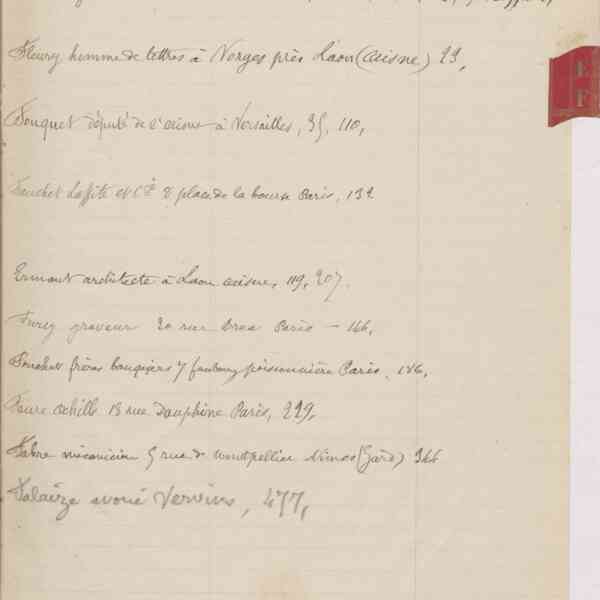 Fleury homme de lettres à Vorges près Laon (aisne) 23,
Fouquet député de l'aisne à Versailles, 35, 110,
Fauchet Laffite et Cie 8 place de la bourse Paris, 132
Ermant architecte à Laon aisne, 119, 207.
Furey graveur 20 rue Paris — 166,
frères 7 faubourg poissonnière Paris, 186,
Faure achille 18 rue Dauphine Paris, 229,
Fabre mécanicien 5 rue de montpellier Nimes (Gard) 344
Falaize avoué Vervins, 477,
E
F